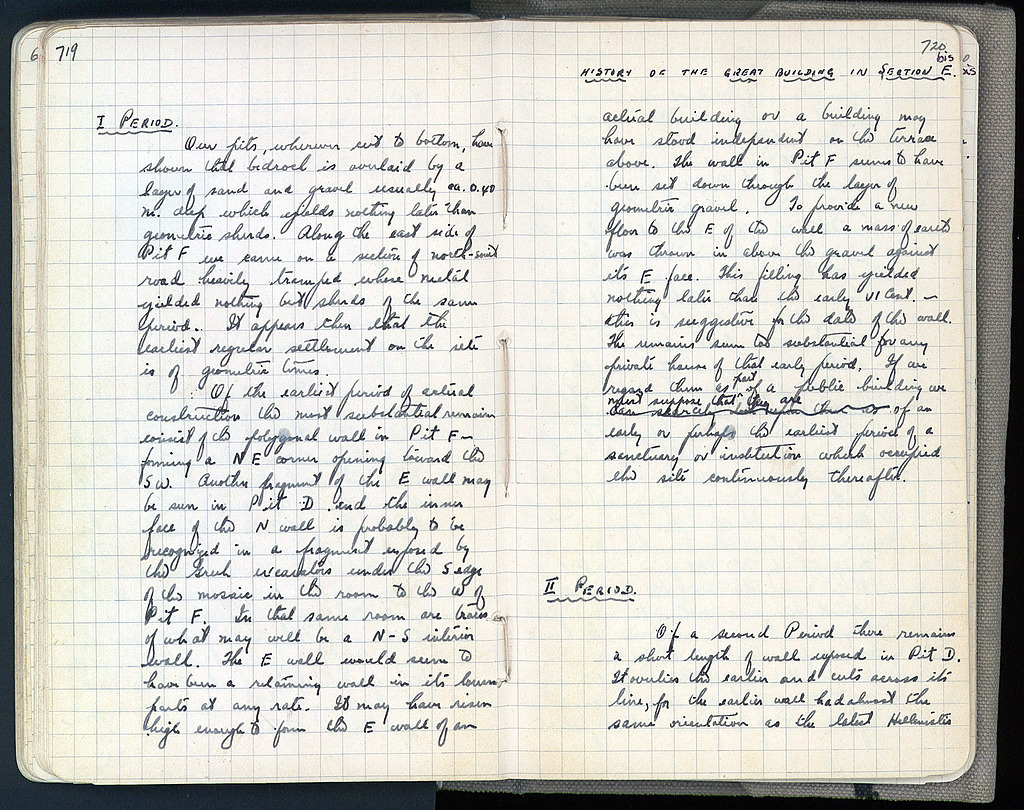 6
719
I PERIOD.
Our pits, wherever cut to bottom, have
shown that bedrock is overlaid by a
layer of sand and gravel usually ca. 0.40
m. deep which yields nothing later than
geometric sherds. Along the east side of
Pit F we came on a section of north-south
road heavily tramped whose metal
yielded nothing but sherds of the same
period. It appears then that the
earliest regular settlement on the site
is of geometric times.
Of the earliest period of actual
construction the most substantial remains
consist of the polygonal wall in Pit F –
forming a NE corner opening toward the
SW. Another fragment of the E wall may
be seen in Pit D and the inner
face of the N wall is probably to be
recognized in a fragment exposed by
the Greek excavators under the S edge
of the mosaic in the room to the W of
Pit F. In that same room are traces
of what may well be a N-S interior
wall. The E wall would seem to
have been a retaining wall in its lower
parts at any rate. It may have risen
high enough to form the E wall of an
720
bis
HISTORY OF THE GREAT BUILDING IN SECTION E.
actual building or a building may
have stood independent on the terrace
above. The wall in Pit F seems to have
been set down through the layer of
geometric gravel. To provide a new
floor to the E of the wall a mass of earth
was thrown in above the gravel against
its E face. This filling has yielded
nothing later than the early VI Cent. –
this is suggestive for the date of the wall.
The remains seem too substantial for any
private house of that early period. If we
regard them as part of a public building we
must suppose that they are
of an
early or perhaps the earliest period of a
sanctuary or institution which occupied
the site continuously thereafter.
II PERIOD.
Of a second Period there remains
a short length of wall exposed in Pit D.
It overlies the earlier and cuts across its
line, for the earlier wall had almost the
same orientation as the latest Hellenistic